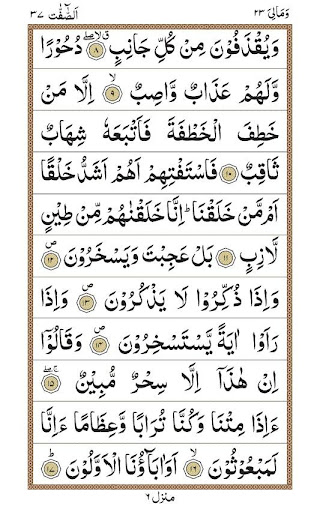 وَمَالِیَ ٢٣ اَلصّٰٓفّٰت ٣٧
وَیُقْذَفُوْنَ مِنْ كُلِّ جَانِبٍ ۝٨ ق صلے دُحُوْرًا
وَّلَهُمْ عَذَابٌ وَّاصِبٌ ۝٩ۙ اِلَّا مَنْ
خَطِفَ الْخَطْفَةَ فَاَتْبَعَهٗ شِهَابٌ
ثَاقِبٌ ۝١٠ فَاسْتَفْتِهِمْ اَهُمْ اَشَدُّ خَلْقًا
اَمْ مَّنْ خَلَقْنَا ؕ اِنَّا خَلَقْنٰهُمْ مِّنْ طِیْنٍ
لَّازِبٍ ۝١١ بَلْ عَجِبْتَ وَیَسْخَرُوْنَ ۝١٢ص
وَاِذَا ذُكِّرُوْا لَا یَذْكُرُوْنَ ۝١٣ص وَاِذَا
رَاَوْا اٰیَةً یَّسْتَسْخِرُوْنَ ۝١٤ص وَقَالُوْۤا
اِنْ هٰذَاۤ اِلَّا سِحْرٌ مُّبِیْنٌ ۝١٥ۚۖ
ءَاِذَا مِتْنَا وَكُنَّا تُرَابًا وَّعِظَامًا ءَاِنَّا
لَمَبْعُوْثُوْنَ ۝١٦ۙ اَوَاٰبَآؤُنَا الْاَوَّلُوْنَ ۝١٧ؕ
منزل ٦